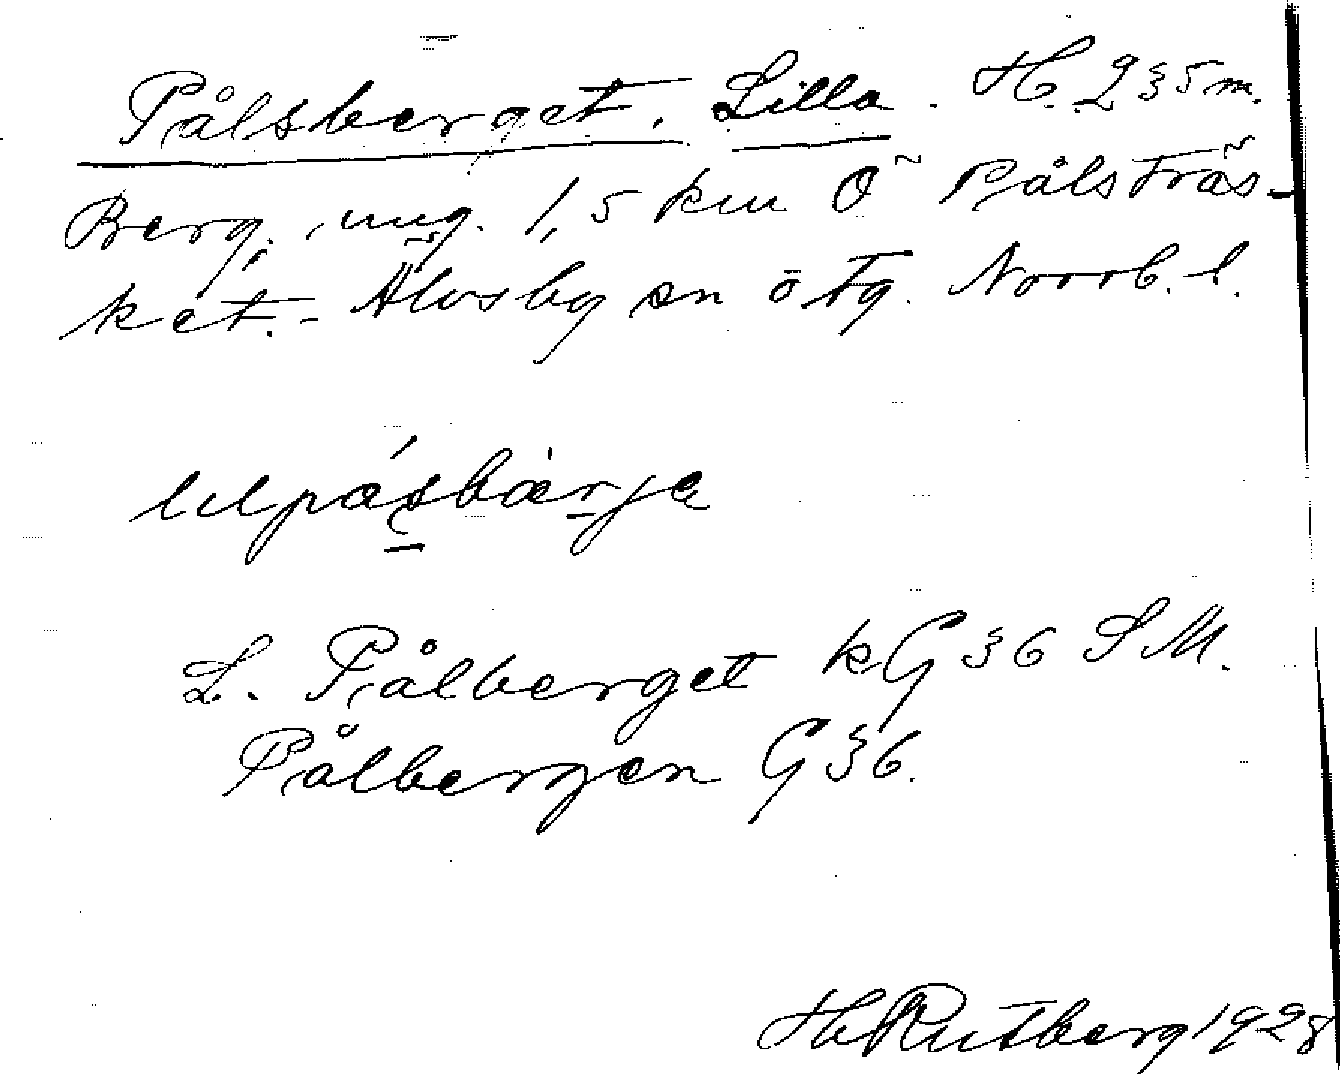 Pålsberget. Lilla. H. 235 m.
Berg, ung. 1,5 km Ö Pålsträs-
ket. - Älvsby sn ö tg. Norrb. l.
lilpásbærje
L. Pålberget kG 36 SM.
Pålbergen G 36.
HRutberg 1928